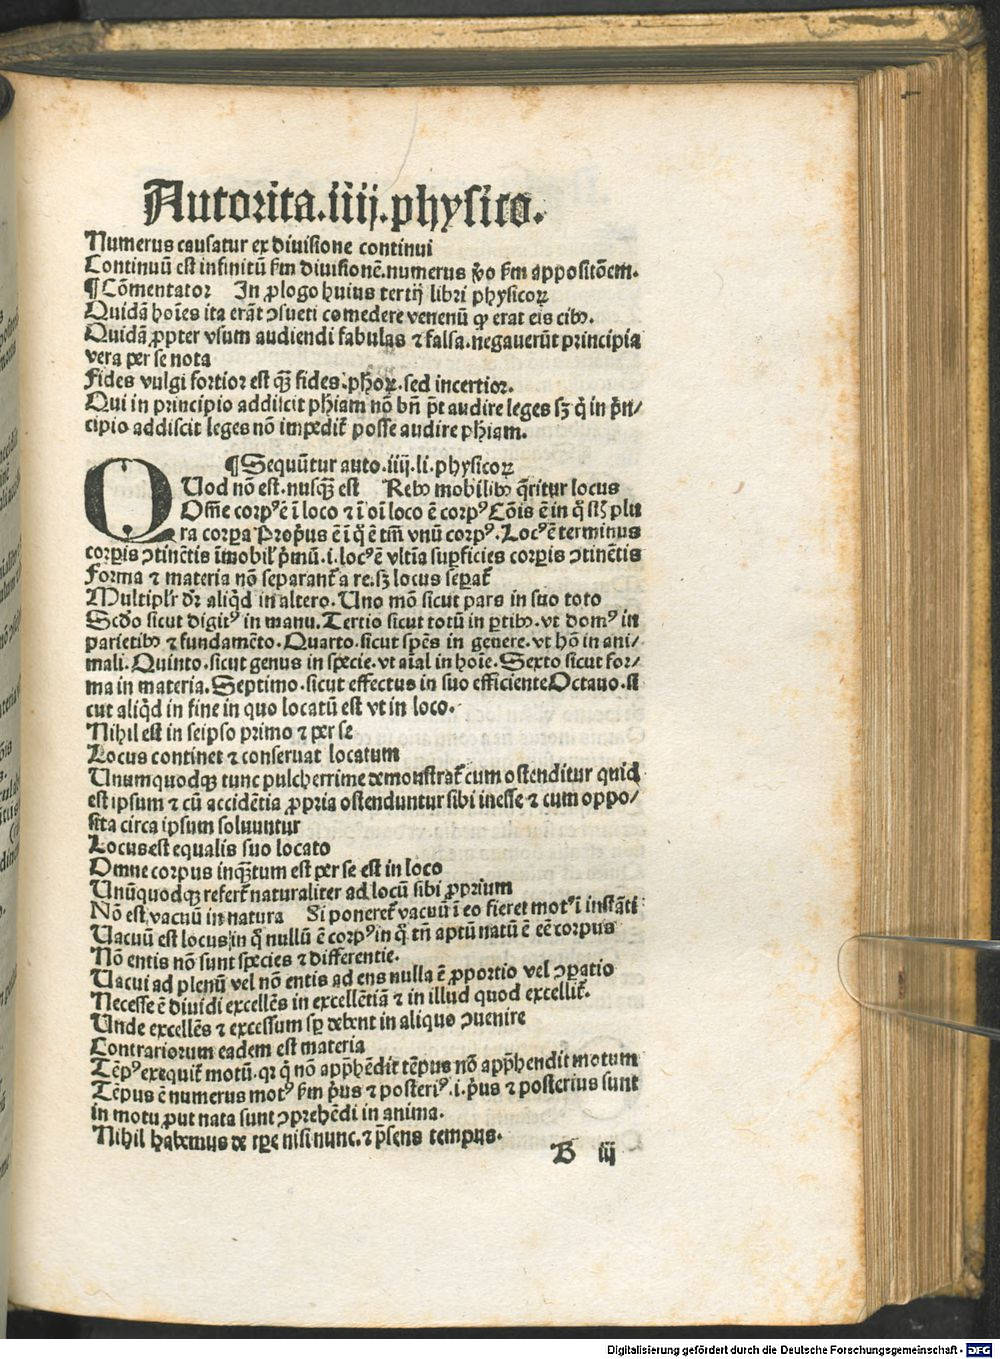 Autorita.iiij.physico.
Numerus causatur ex diuisione continui
Continuū est infinitū fm diuisionē.numerus ꝟo fm appositōem.
¶ Cōmentator In ꝓlogo huius tertij libri physicoꝝ
Quidā hoīes ita erāt ↄsueti comedere venenū ꝙ erat eis cibꝰ.
Quidā ꝓpter vsum audiendi fabulas ⁊ falsa.negauerūt principia
vera per se nota
Fides vulgi fortior est qᷓꝫ fides.phoꝝ.sed incertior.
Qui in principio addiscit phiam nō bn̄ pt̄ audire leges sꝫ q̇ in pͥn/
cipio addiscit leges nō impedit᷑ posse audire phiam.
¶ Sequūtur auto.iiij.li.physicoꝝ
QUod nō est.nusqᷓꝫ est Rebꝰ mobilibꝰ q̄ritur locus
Om̄e corpꝰ ē ī loco ⁊ ī oī loco ē corpꝰ Cōis ē in q̊ sūt plu
ra corꝑa Propͥus ē ī q̊ ē tm̄ vnū corpꝰ. Locꝰ ē terminus
corꝑis ↄtinētis īmobil̓ pͥmū.i.locꝰ ē vltīa suꝑficies corꝑis ↄtinētis
Forma ⁊ materia nō separant᷑ a re.sꝫ locus seꝑat᷑
Multipl̓r dr̄ aliqͥd in altero.Uno mō sicut pars in suo toto
Scd̓o sicut digitꝰ in manu.Tertio sicut totū in ꝑtibꝰ.vt domꝰ in
parietibꝰ ⁊ fundamēto.Quarto.sicut sp̄es in genere.vt hō in ani-
mali.Quinto.sicut genus in specie.vt aīal in hoīe.Sexto sicut for/
ma in materia.Septimo.sicut effectus in suo efficiente Octauo.si
cut aliqͥd in fine in quo locatū est vt in loco.
Nihil est in seipso primo ⁊ per se
Locus continet ⁊ conseruat locatum
Unumquodqꝫ tunc pulcherrime demonstrat᷑ cum ostenditur quid
est ipsum ⁊ cū accidētia ꝓpria ostenduntur sibi inesse ⁊ cum oppo/
sita circa ipsum soluuntur
Locus est equalis suo locato
Omne corpus inqᷓꝫtum est per se est in loco
Unūquodqꝫ refert᷑ naturaliter ad locū sibi ꝓprium
Nō est vacuū in natura Si poneret᷑ vacuū ī eo fieret motꝰ ī instāti
Uacuū est locus in q̊ nullū ē corpꝰ in q̊ tn̄ aptū natū ē eē corpus
Nō entis nō sunt species ⁊ differentie.
Uacui ad plenū vel nō entis ad ens nulla ē ꝓportio vel ↄꝑatio
Necesse ē diuidi excellēs in excellētiā ⁊ in illud quod excellit᷑.
Unde excellēs ⁊ excessum sꝑ debent in aliquo ↄuenire
Contrariorum eadem est materia
Tēpꝰ exequit᷑ motū.qꝛ q̇ nō app̄hēdit tēpus nō app̄hendit motum
Tēpus ē numerus motꝰ fm pͥus ⁊ posteriꝰ.i.pͥus ⁊ posterius sunt
in motu ꝓut nata sunt ↄprehēdi in anima.
Nihil habemus de tꝑe nisi nunc.⁊ p̄sens tempus.
B iij
Digitalisierung gefördert durch die Deutsche Forschungsgemeinschaft - DFG